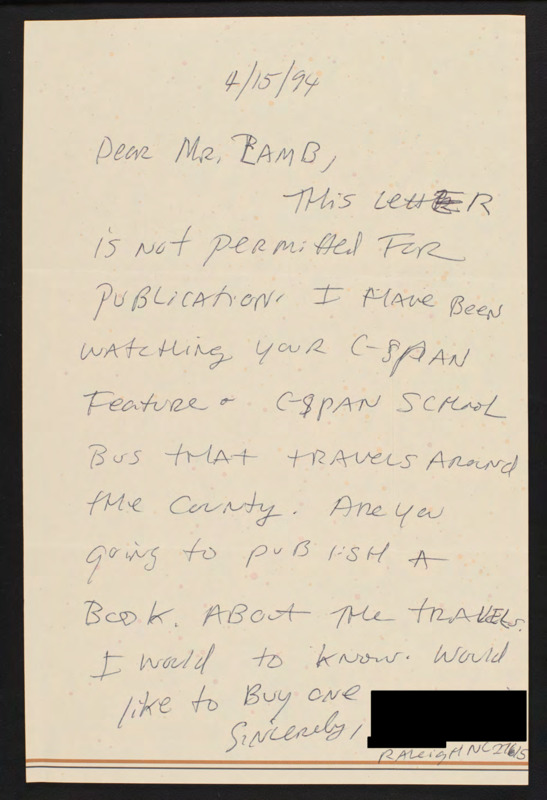 4/15/94
Dear Mr. LAMB,
THis LettER
is not permitted FOR
PUBLICATION. I HAVE Been
WATCHing your C-SPAN
Feature & C-SPAN SCHooL
Bus tHAT tRAVELS Around
tHe County. Are you
going to puBLISH A
Book. ABout THe tRAVELS.
I would to know. Would
like to Buy one
Sincerely,
RALeigH NC 27615